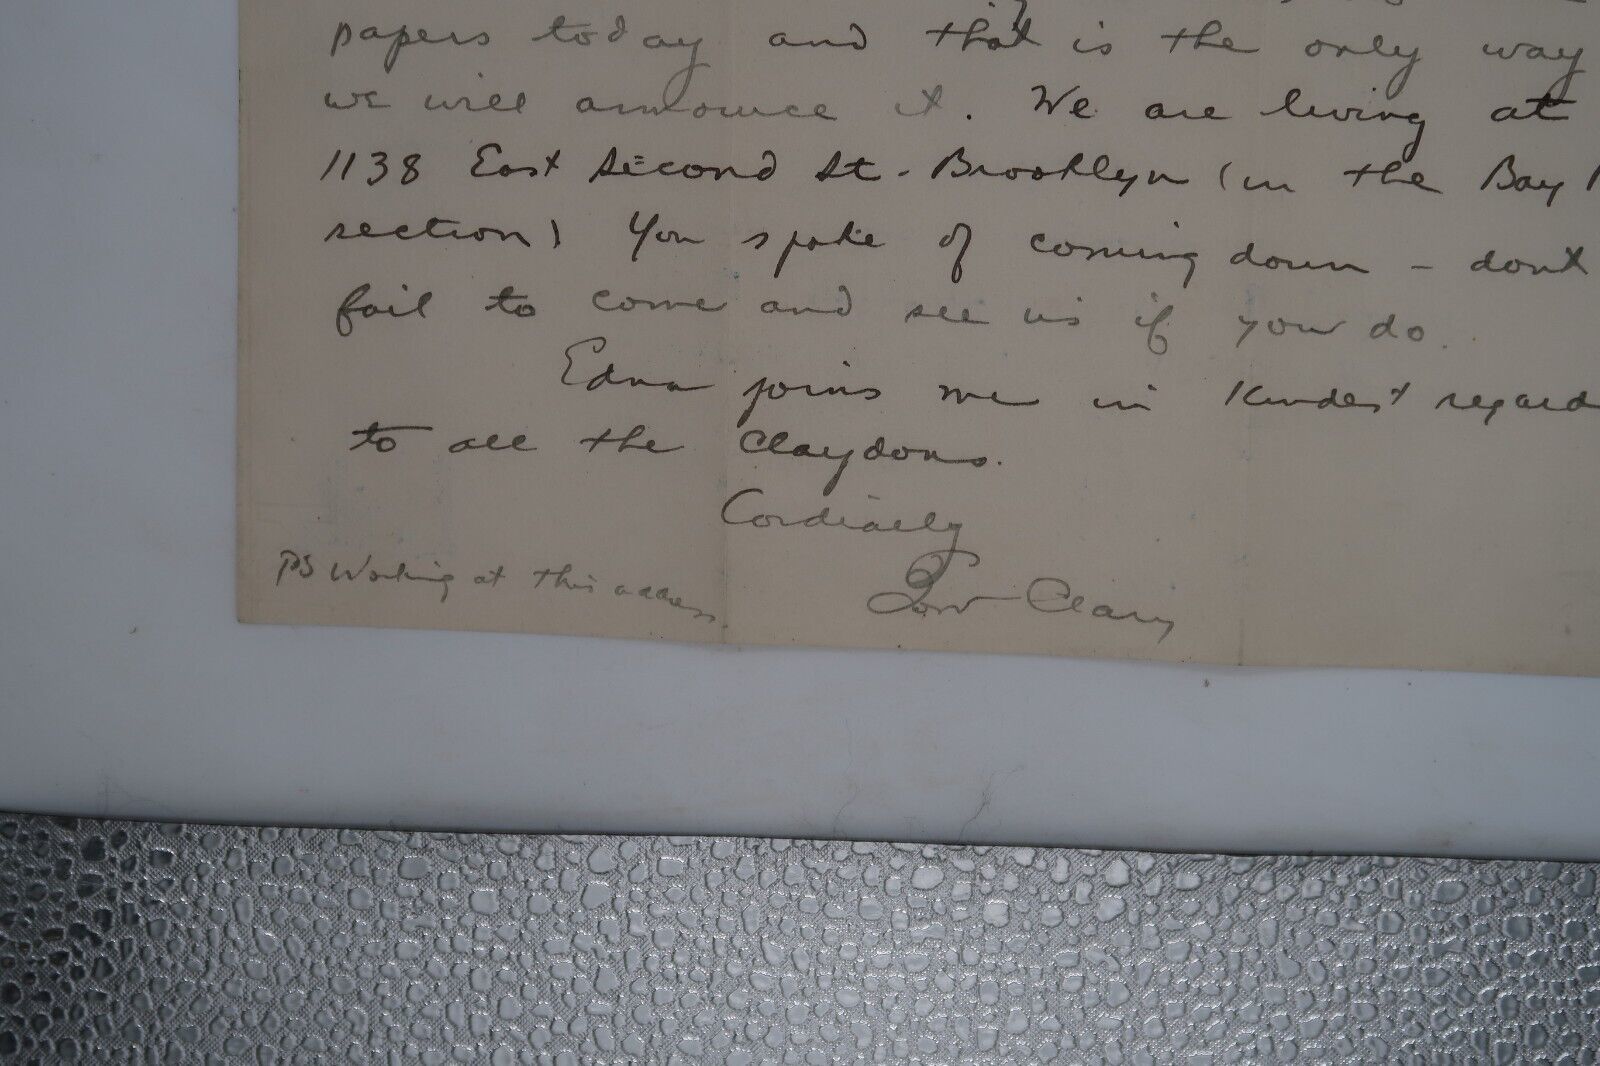 papers today and that is the only way
we will announce it. We are living at
1138 East Second St. Brooklyn (in the Bay
section) You spoke of coming down - dont
fail to come and see us if you do.
Edna joins me in kindest regard
to all the Claydons.
Cordially
Clary
PS Working at this address.